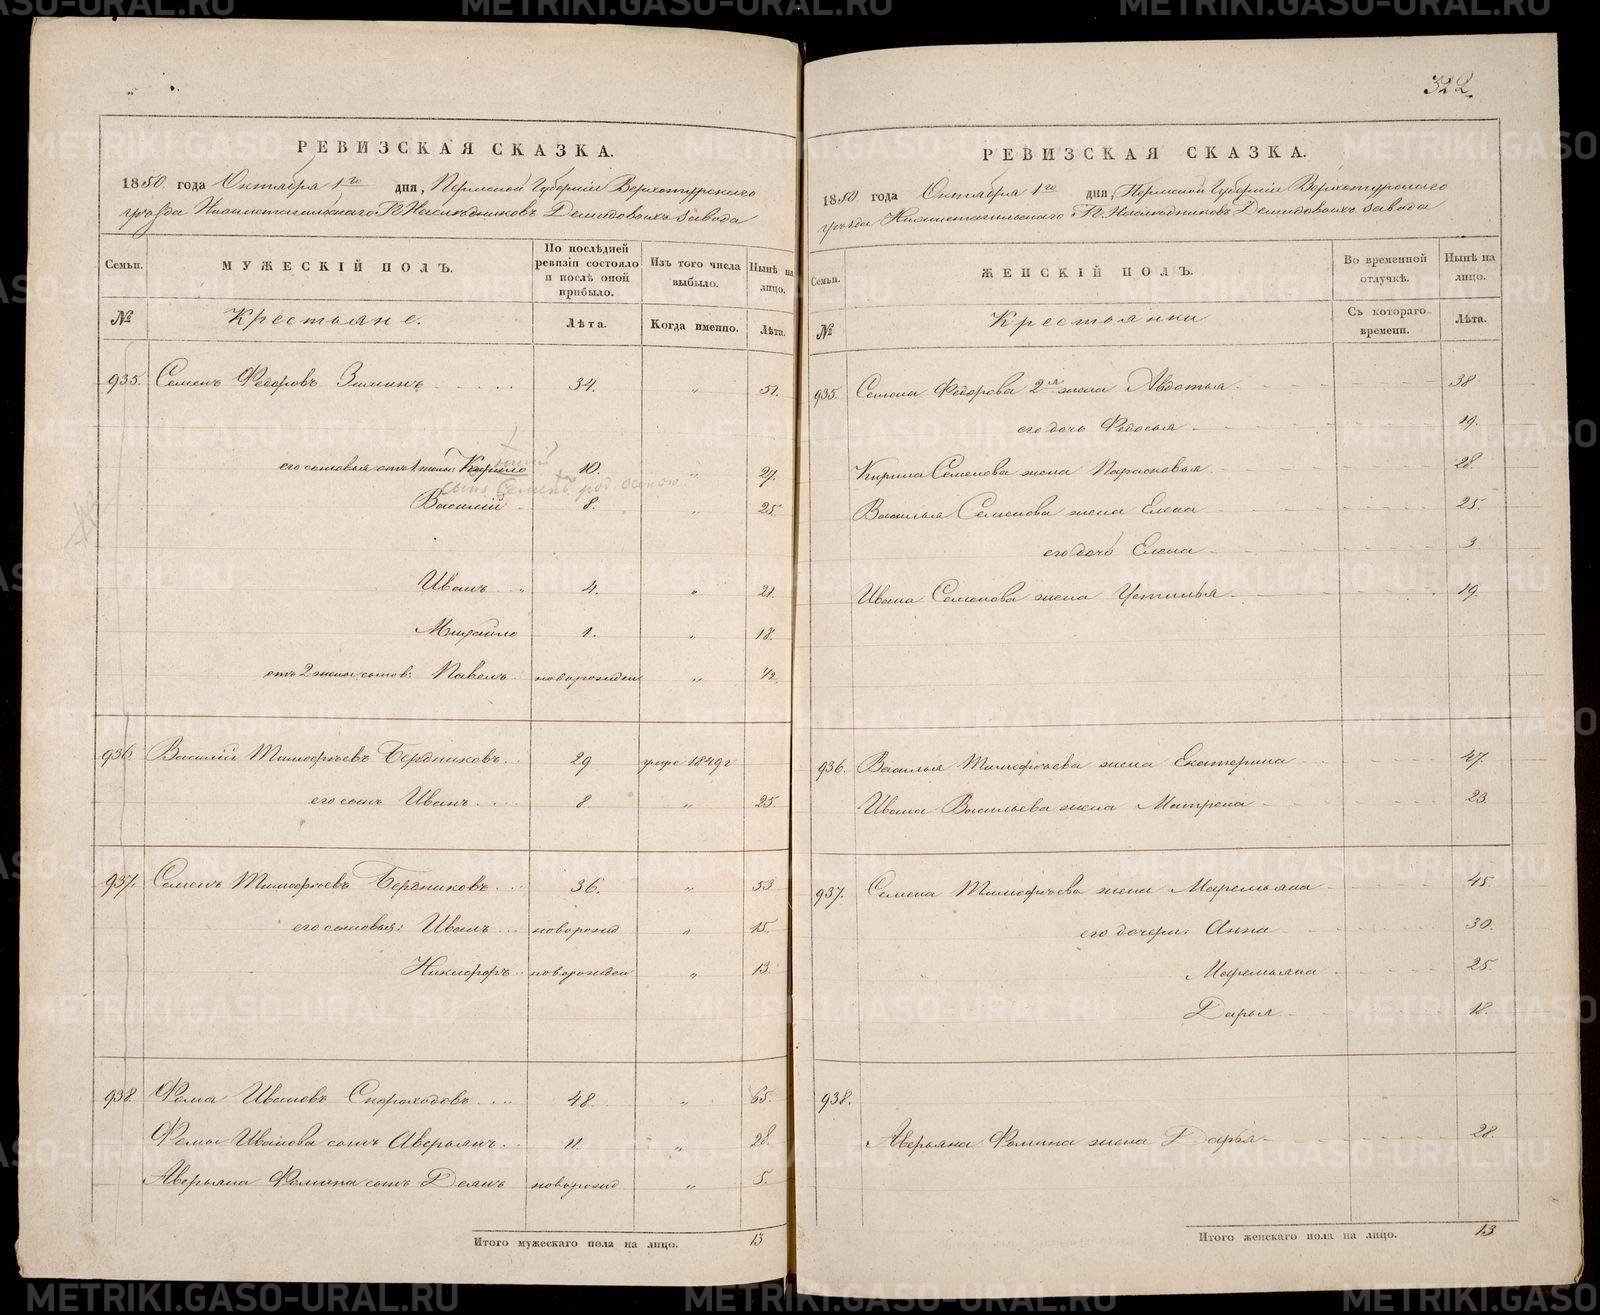 322.
РЕВИЗСКАЯ СКАЗКА.
1850. года Октября 1го дня, Пермской Губерніи Верхотурскаго
уѣзда Нижнетагильскаго Г. Наслѣдниковъ Демидовыхъ завода
Семьи. МУЖЕСКІЙ ПОЛЪ. По послѣдней ревизіи состояло и послѣ оной прибыло. Изъ того числа выбыло. Нынѣ на лицо.
№ Крестьяне. Лѣта. Когда именно. Лѣта.
935. Семенъ Федоровъ Зиминъ 34. „ 51.
его сыновья отъ 1 жены: Кирило 10. „ 27.
сынъ Семенъ род.
Василій 8. „ 25.
Иванъ 4. „ 21.
Михайло 1. „ 18.
отъ 2 жены сынов: Павелъ новорожден „ 1/2.
936 Василій Тимофѣевъ Бердниковъ 29 умре 1849 г
его сынъ Иванъ 8 „ 25.
937. Семенъ Тимофѣевъ Бердниковъ 36. „ 53
его сыновья: Иванъ новорожд „ 15.
Никифоръ новорожден „ 13.
938. Фома Ивановъ Скороходовъ 48. „ 65.
Фомы Иванова сынъ Аверьянъ 11. „ 28.
Аверьяна Фомина сынъ Демидъ новорожд „ 5.
Итого мужескаго пола на лицо. 13
РЕВИЗСКАЯ СКАЗКА.
1850 года Октября 1го дня, Пермской Губерніи Верхотурскаго
уѣзда Нижнетагильскаго Г. Наслѣдниковъ Демидовыхъ завода
Семьи. ЖЕНСКІЙ ПОЛЪ. Во временной отлучкѣ. Нынѣ на лицо.
№ Крестьянки Съ котораго времени. Лѣта.
935. Семена Федорова 2я жена Авдотья 38
его дочь Федосья 19.
Кирила Семенова жена Парасковья 28.
Василья Семенова жена Елена 25.
его дочь Елена 3.
Ивана Семенова жена Устинья 19.
936. Василья Тимофѣева жена Екатерина 47.
Ивана Васильева жена Матрена 23.
937. Семена Тимофѣева жена Маремьяна 45.
его дочери: Анна 30.
Маремьяна 25
Дарья 18.
938.
Аверьяна Фомина жена Дарья 28.
Итого женскаго пола на лицо. 13
METRIKI.GASO-URAL.RU